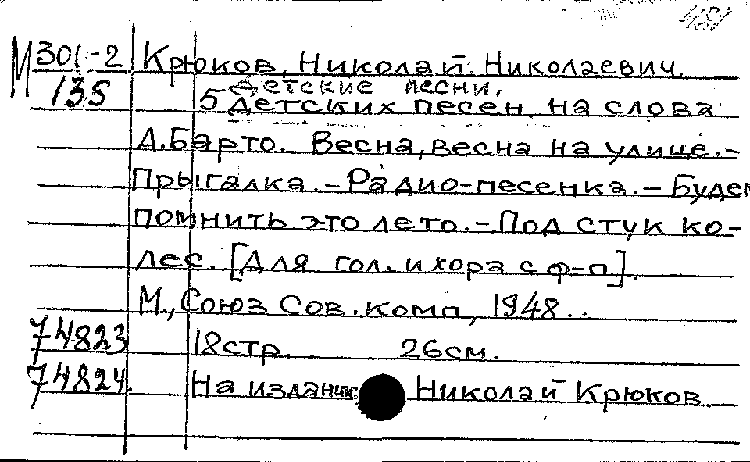 М 301-2 Крюков, Николай Николаевич.
135 Детские песни.
5 детских песен на слова
А.Барто. Весна, весна на улице.-
Прыгалка.-Радио-песенка.-Будем
помнить это лето.-Под стук ко-
лес. [Для гол. и хора с ф-п].
М., Союз Сов. комп, 1948..
74823 18стр. 26см.
74824. На издании Николай Крюков